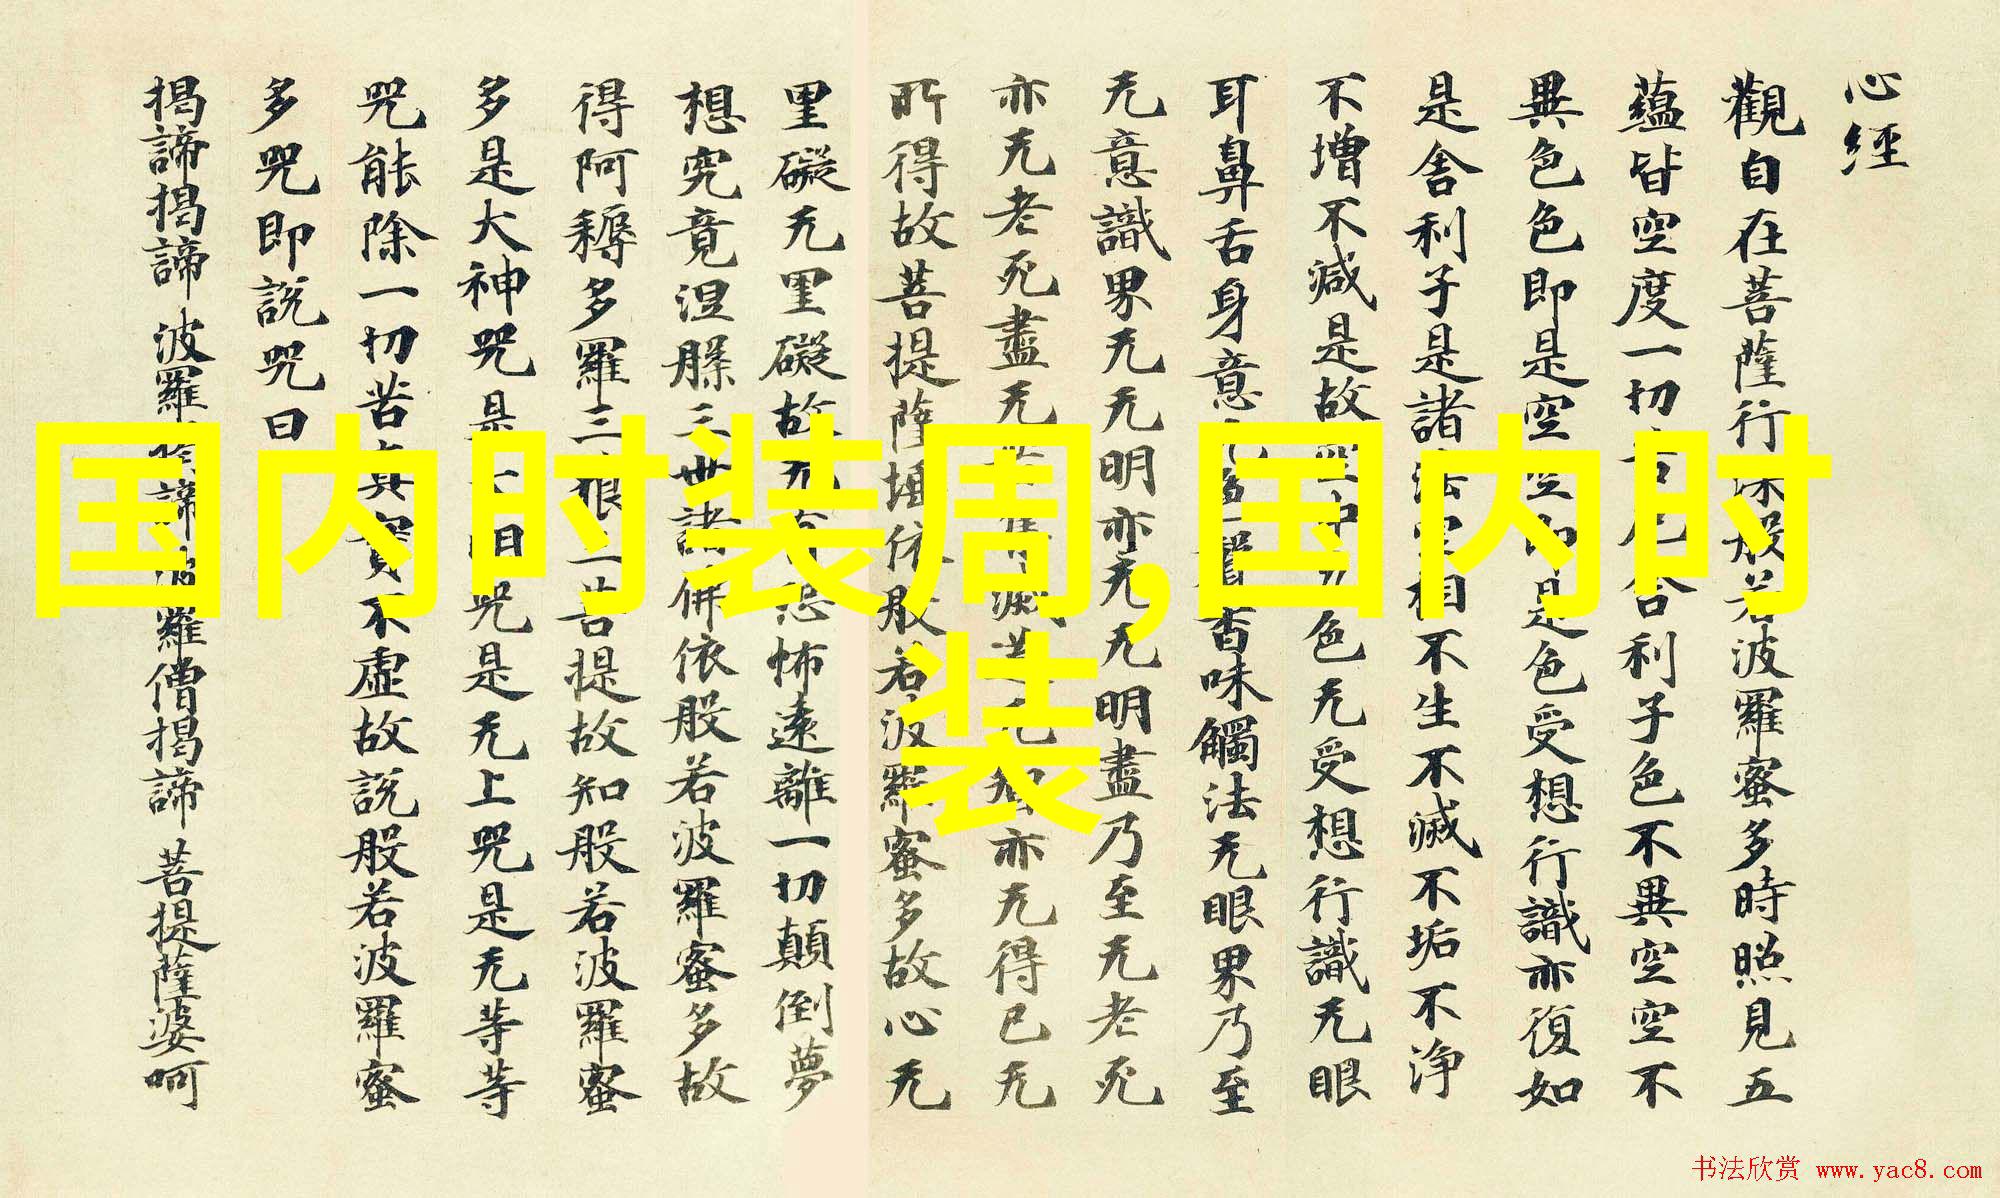 心經
觀自在菩薩行深般若波羅蜜多時照見五
蘊皆空度一切苦厄舍利子色不異空空不
異色色即是空空即是色受想行識亦復如
是舍利子是諸法空相不生不滅不垢不淨
不增不減是故空中无色无受想行識无眼
耳鼻舌身意无色聲香味觸法无眼界乃至
无意識界无无明亦无无明盡乃至无老死
亦无老死盡无苦集滅道无智亦无得已无
所得故菩提薩埵依般若波羅蜜多故心无
罣礙无罣礙故无有恐怖遠離一切顛倒夢
想究竟涅槃三世諸佛依般若波羅蜜多故
得阿耨多羅三藐三菩提故知般若波羅蜜
多是大神咒是大明咒是无上咒是无等等
咒能除一切苦真實不虛故說般若波羅蜜
多咒即說咒曰
揭諦揭諦 波羅揭諦波羅僧揭諦 菩提薩婆呵
国内时装周,国内时
装
书法欣赏 www.yac8.com